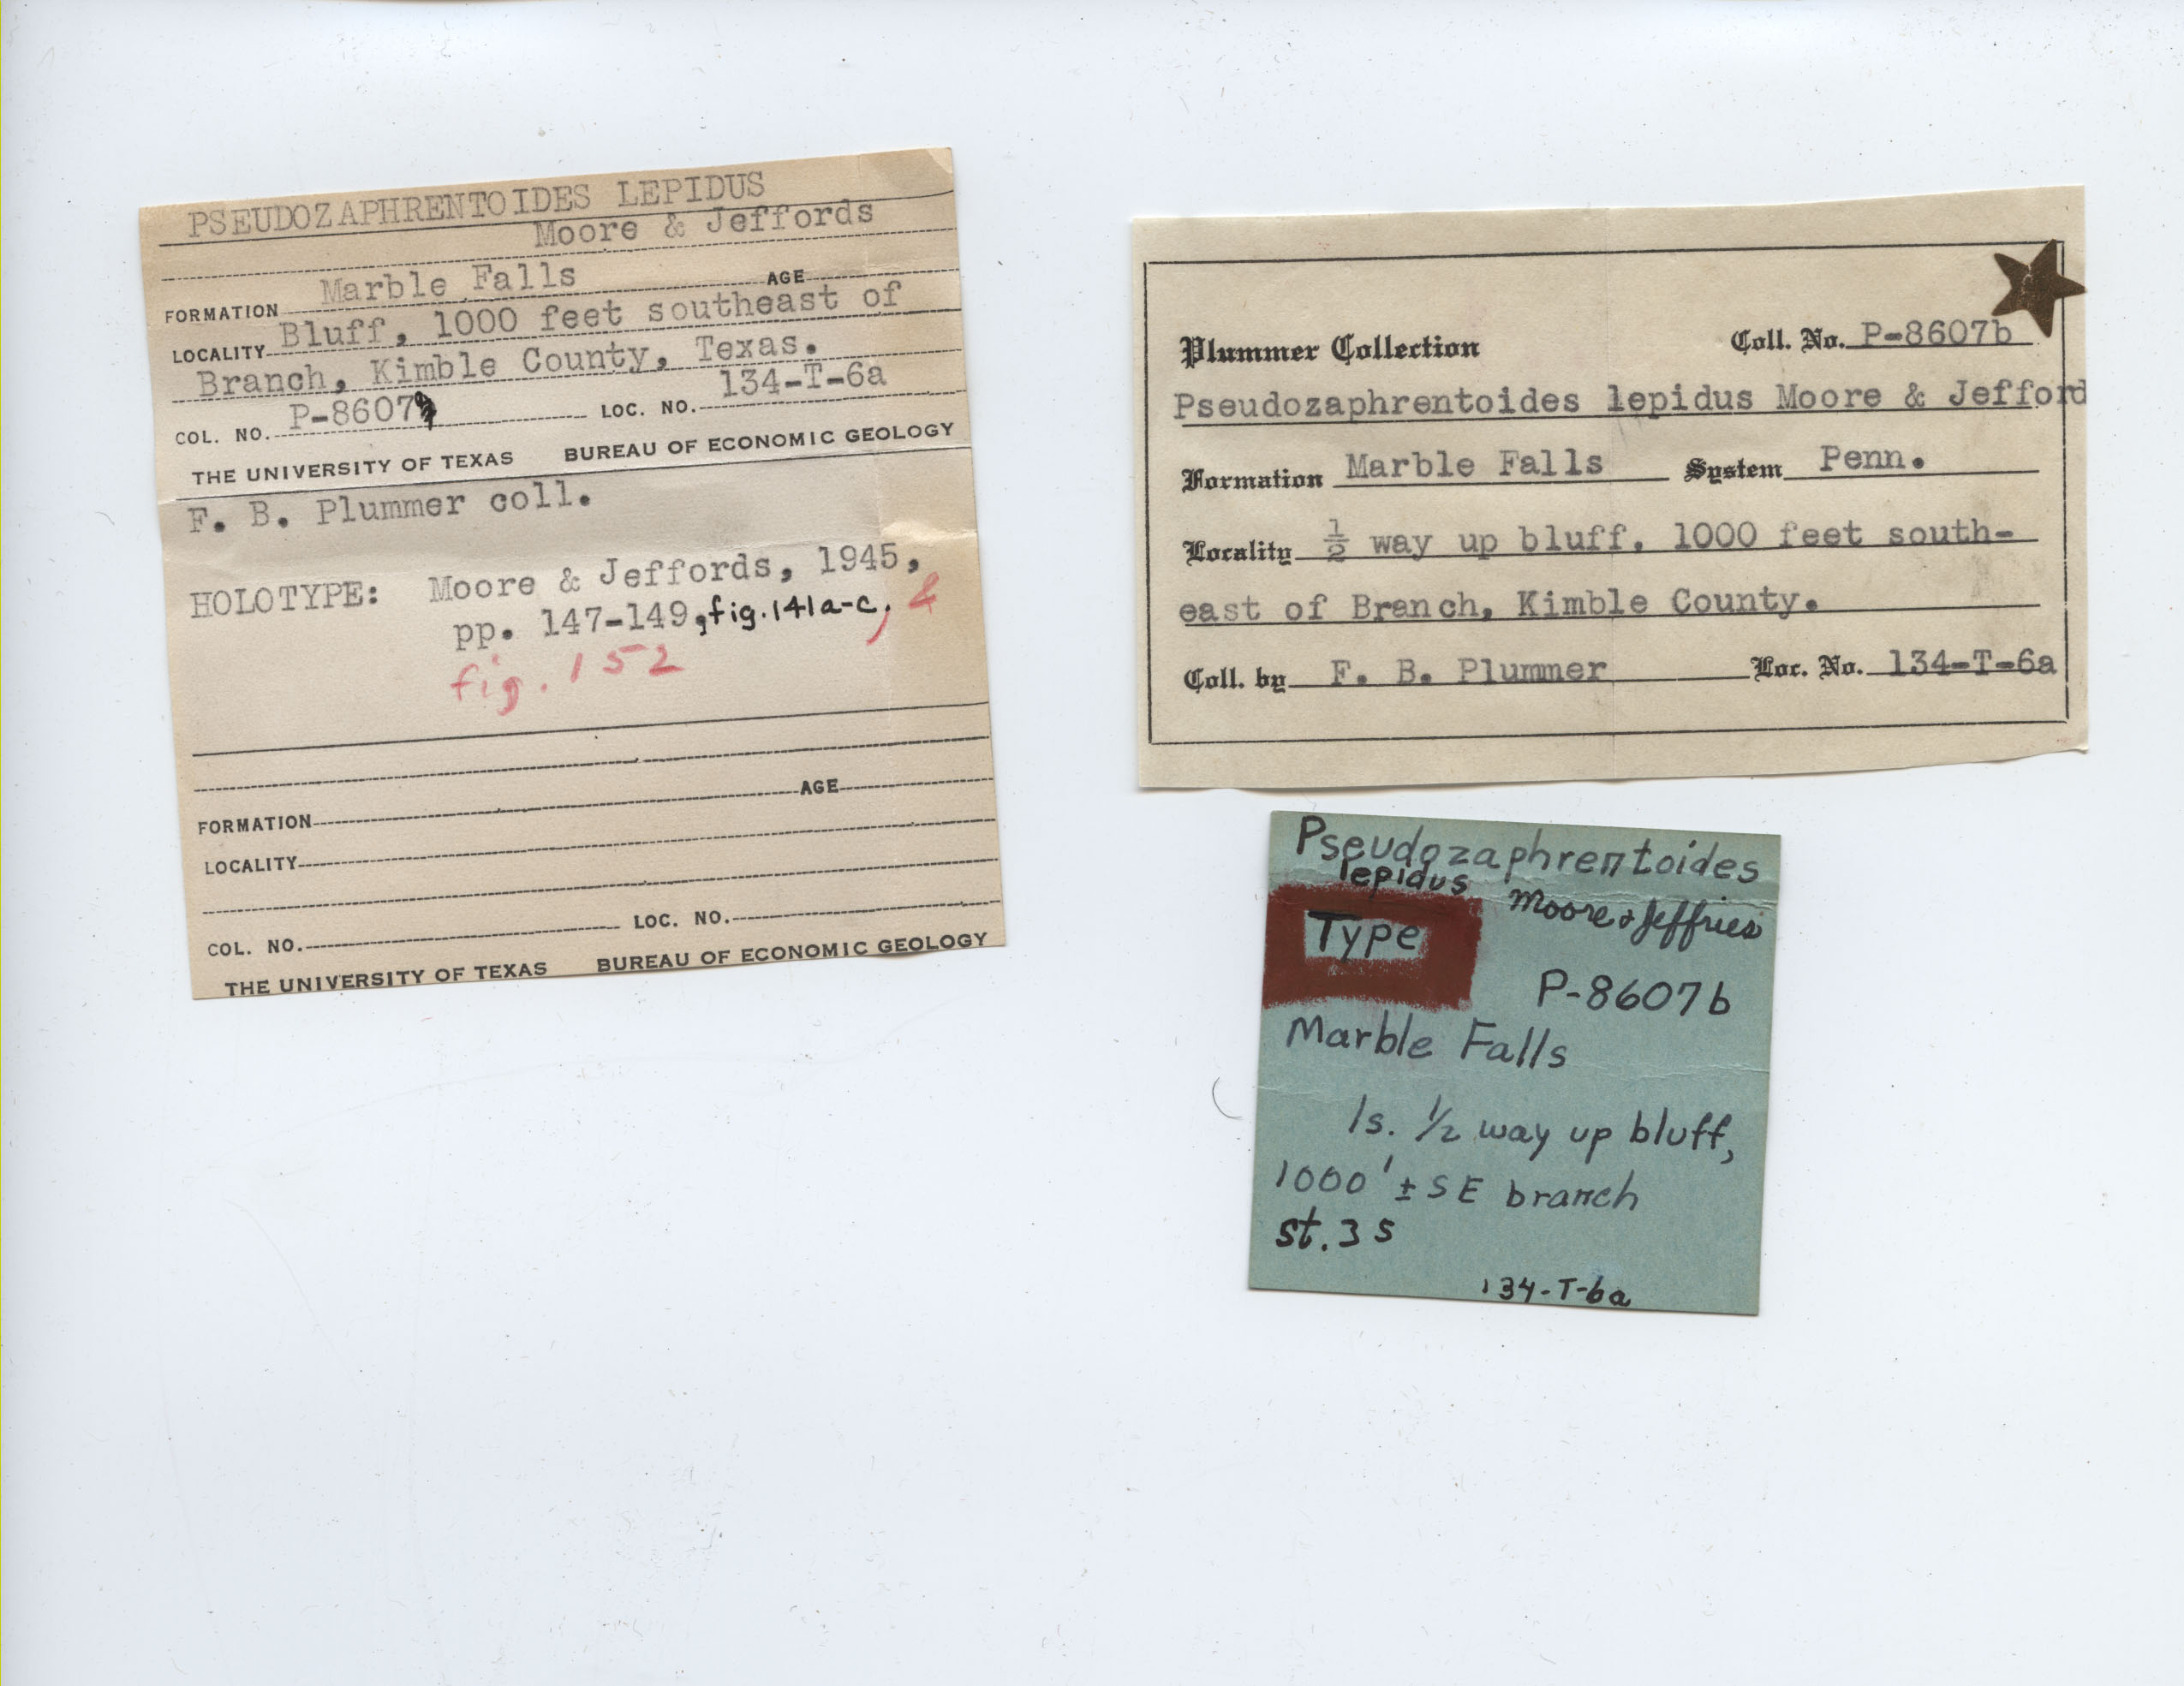 PSEUDOZAPHRENTOIDES LEPIDUS
Moore & Jeffords
FORMATION Marble Falls AGE
LOCALITY Bluff, 1000 feet southeast of
Branch, Kimble County, Texas.
COL. NO. P-8607 LOC. NO. 134-T-6a
THE UNIVERSITY OF TEXAS BUREAU OF ECONOMIC GEOLOGY
F. B. Plummer coll.
HOLOTYPE: Moore & Jeffords, 1945,
pp. 147-149, fig. 141a-c, &
fig. 152
AGE
FORMATION
LOCALITY
COL. NO. LOC. NO.
THE UNIVERSITY OF TEXAS BUREAU OF ECONOMIC GEOLOGY
Plummer Collection Coll. No. P-8607b
Pseudozaphrentoides lepidus Moore & Jefford
Formation Marble Falls System Penn.
Locality ½ way up bluff, 1000 feet south-
east of Branch, Kimble County.
Coll. by F. B. Plummer Loc. No. 134-T-6a
Pseudozaphrentoides
lepidus Moore & Jeffries
Type
P-8607b
Marble Falls
ls. ½ way up bluff,
1000' ± SE branch
st. 3 S
134-T-6a